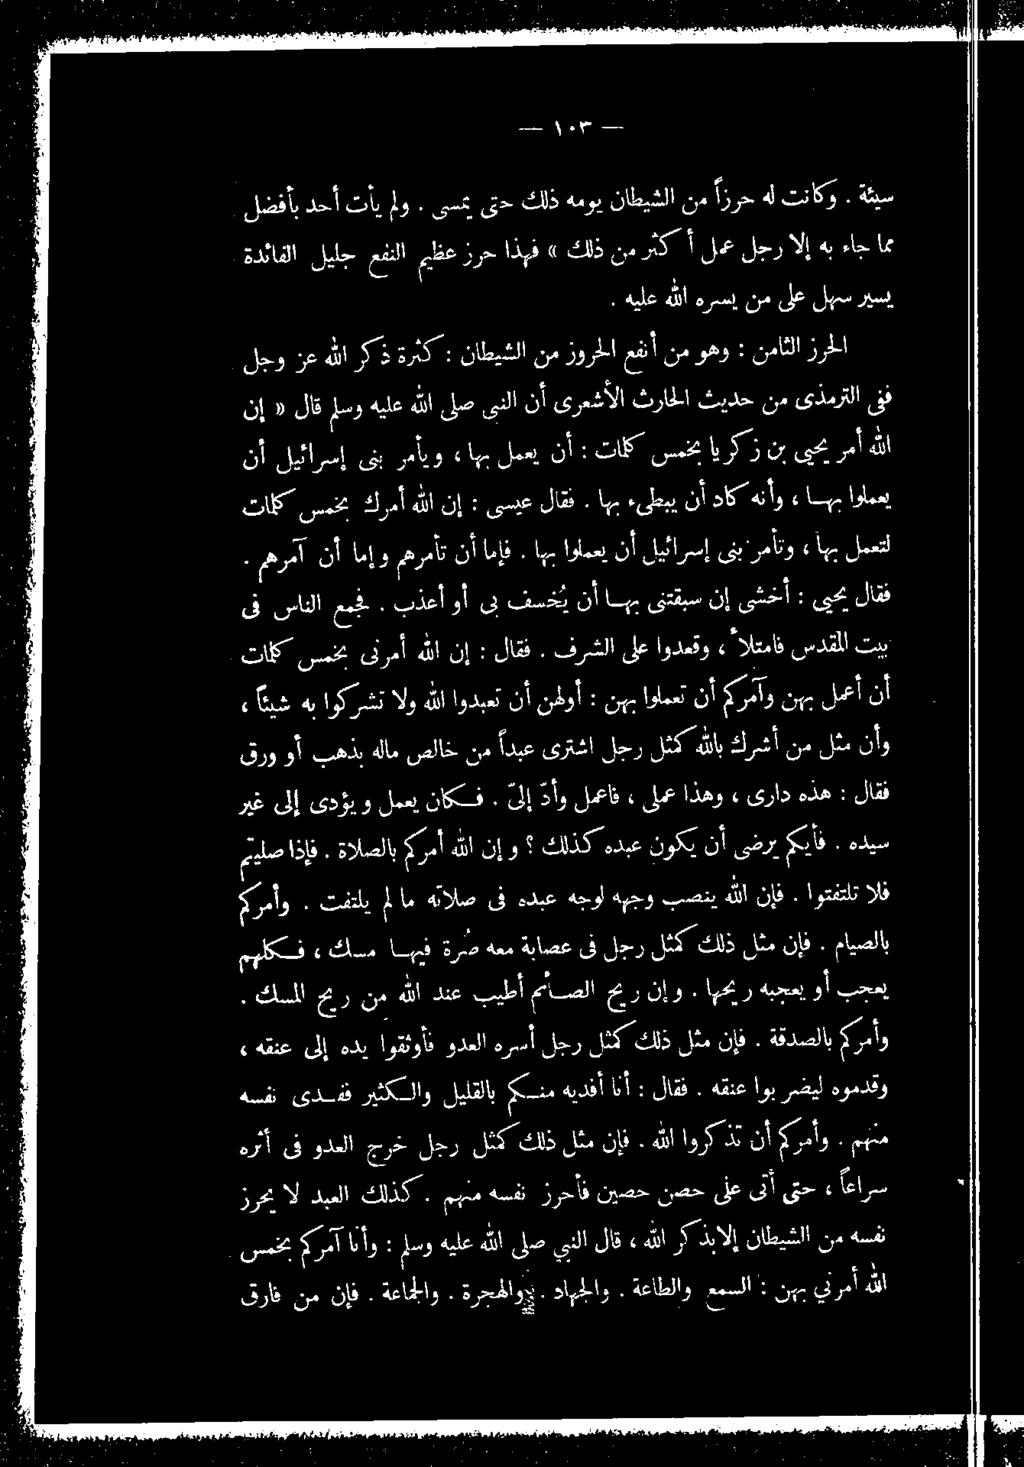 — ١٠٣ —
سيئة . وكانت له حرزاً من الشيطان يومه ذلك حتى يمسى . ولم يأت أحد بأفضل
مما جاء به إلا رجل عمل أكثر من ذلك » فهذا حرز عظيم النفع جليل الفائدة
يسير سهل على من يسره الله عليه .
الحرز الثامن : وهو من أنفع الحروز من الشيطان : كثرة ذكر الله عز وجل
ففى الترمذى من حديث الحارث الأشعرى أن النبى صلى الله عليه وسلم قال « إن
الله أمر يحيى بن زكريا بخمس كلمات : أن يعمل بها ، ويأمر بنى إسرائيل أن
يعملوا بها ، وأنه كاد أن يبطىء بها . فقال عيسى : إن الله أمرك بخمس كلمات
لتعمل بها ، وتأمر بنى إسرائيل أن يعملوا بها . فإما أن تأمرهم وإما أن آمرهم .
فقال يحيى : أخشى إن سبقتنى بها أن يُخسف بى أو أعذب . فجمع الناس فى
بيت المقدس فامتلأ ، وقعدوا على الشرف . فقال : إن الله أمرنى بخمس كلمات
أن أعمل بهن وآمركم أن تعملوا بهن : أولهن أن تعبدوا الله ولا تشركوا به شيئاً ،
وأن مثل من أشرك بالله كمثل رجل اشترى عبداً من خالص ماله بذهب أو ورق
فقال : هذه دارى ، وهذا عملى ، فاعمل وأدّ إلىّ . فكان يعمل ويؤدى إلى غير
سيده . فأيكم يرضى أن يكون عبده كذلك ؟ وإن الله أمركم بالصلاة . فإذا صليتم
فلا تلتفتوا . فإن الله ينصب وجهه لوجه عبده فى صلاته ما لم يلتفت . وأمركم
بالصيام . فإن مثل ذلك كمثل رجل فى عصابة معه صُرة فيها مسك ، فكلهم
يعجب أو يعجبه ريحها . وإن ريح الصائم أطيب عند الله من ريح المسك .
وأمركم بالصدقة . فإن مثل ذلك كمثل رجل أسره العدو فأوثقوا يده إلى عنقه ،
وقدموه ليضربوا عنقه . فقال : أنا أفديه منكم بالقليل والكثير ففدى نفسه
منهم . وأمركم أن تذكروا الله . فإن مثل ذلك كمثل رجل خرج العدو فى أثره
سراعاً ، حتى أتى على حصن حصين فأحرز نفسه منهم . كذلك العبد لا يحرز
نفسه من الشيطان إلا بذكر الله ، قال النبي صلى الله عليه وسلم : وأنا آمركم بخمس
الله أمرني بهن : السمع والطاعة . والجهاد . والهجرة . والجماعة . فإن من فارق